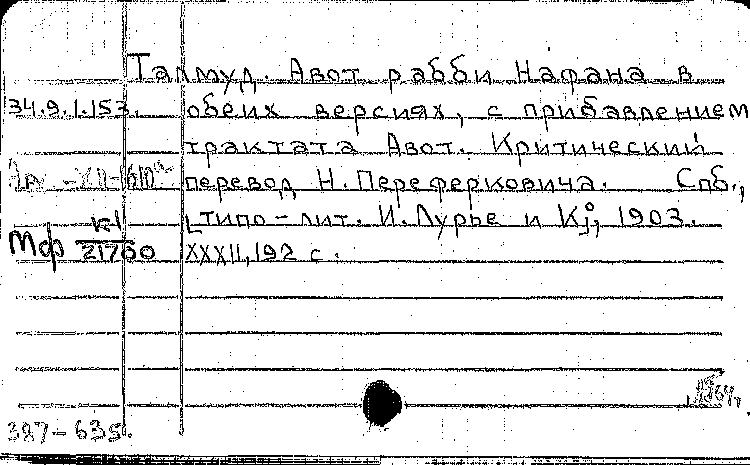 Талмуд. Авот рабби Нафана в
34.9.1.153. обеих версиях, с прибавлением
трактата Авот. Критический
перевод Н. Переферковича. Спб.,
типо-лит. И. Лурье и К°, 1903.
Мф К-1/21700 XXXII, 192 с.
387-635.